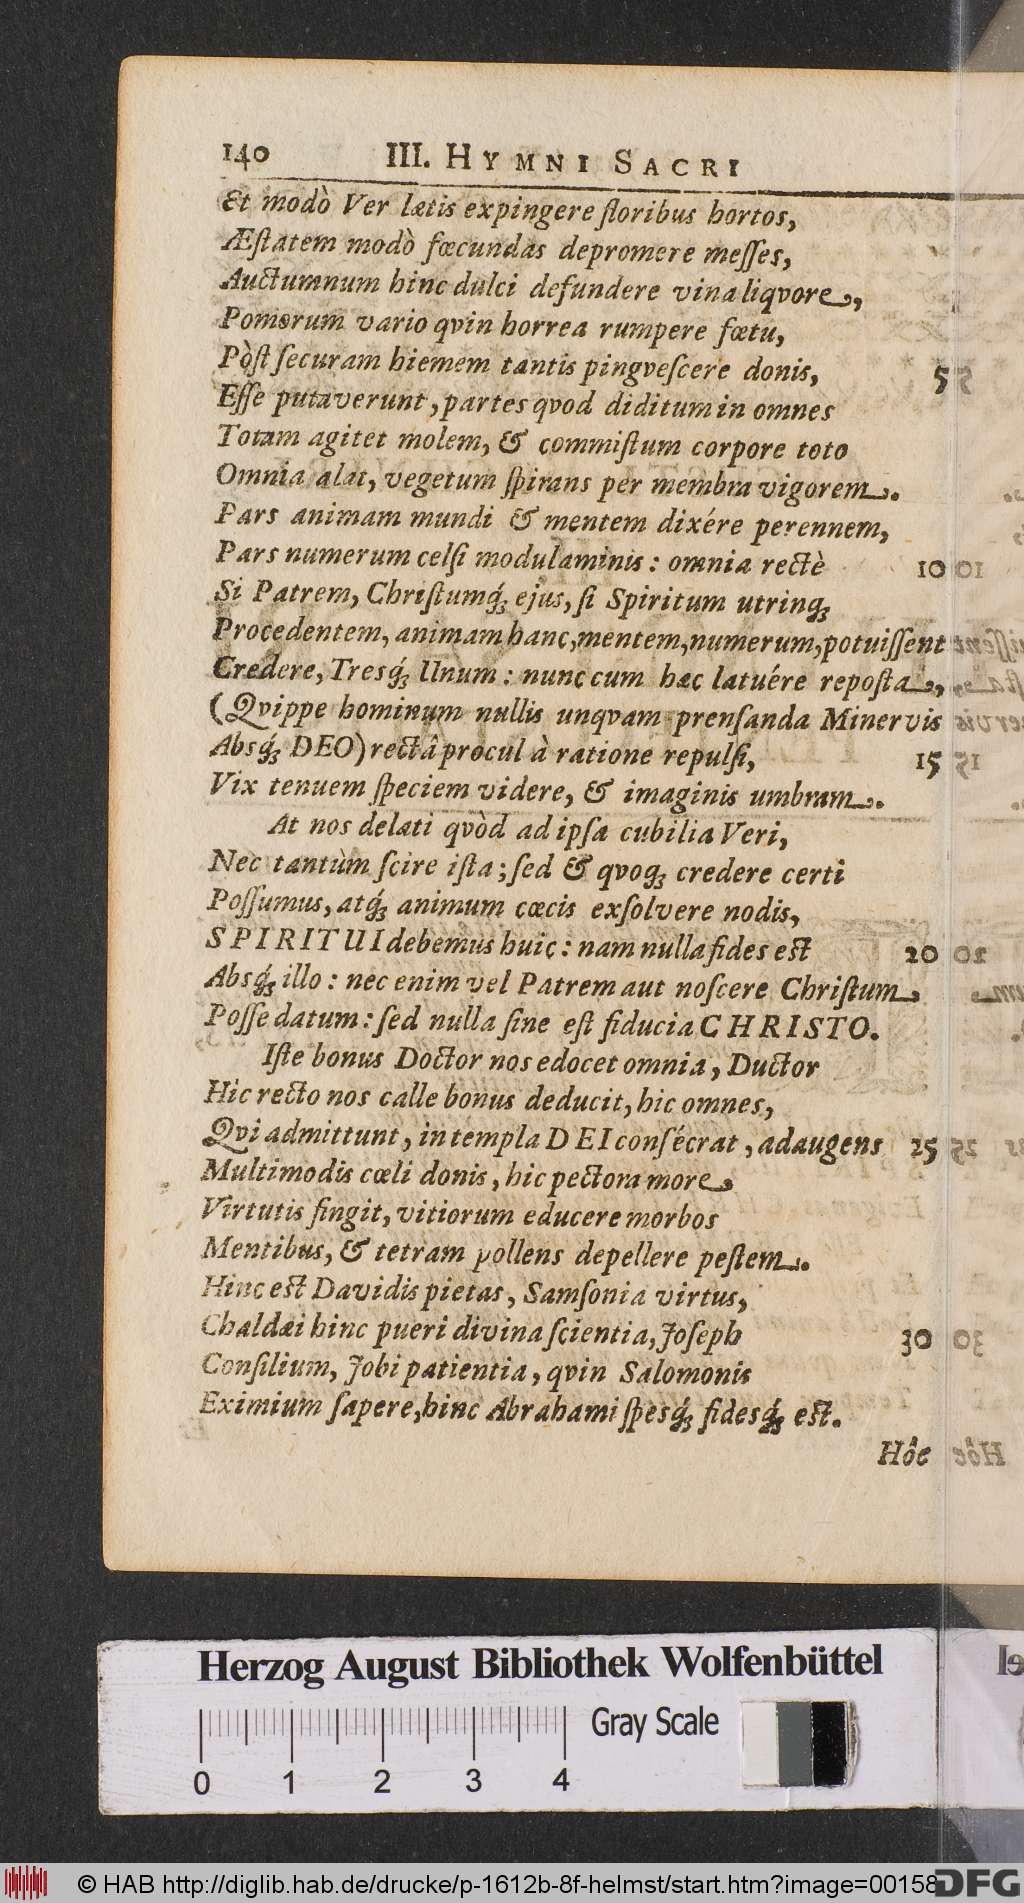 140 III. HYMNI SACRI
Et modò Ver lætis expingere floribus hortos,
Æſtatem modò fœcundas depromere meſſes,
Auctumnum hinc dulci defundere vina liqvore,
Pomorum vario qvin horrea rumpere fœtu,
Pòſt ſecuram hiemem tantis pingveſcere donis, 5
Eſſe putaverunt, partes qvod diditum in omnes
Totam agitet molem, & commiſtum corpore toto
Omnia alat, vegetum ſpirans per membra vigorem.
Pars animam mundi & mentem dixére perennem,
Pars numerum celſi modulaminis: omnia rectè 10
Si Patrem, Chriſtumq́; ejus, ſi Spiritum utrinq;
Procedentem, animam hanc, mentem, numerum, potuiſſent
Credere, Tresq́; Unum: nunc cum hæc latuére repoſta,
(Qvippe hominum nullis unqvam prenſanda Minervis
Absq́; DEO) rectâ procul à ratione repulſi, 15
Vix tenuem ſpeciem videre, & imaginis umbram.
At nos delati qvòd ad ipſa cubilia Veri,
Nec tantùm ſcire iſta; ſed & qvoq; credere certi
Poſſumus, atq́; animum cœcis exſolvere nodis,
SPIRITUI debemus huic: nam nulla fides est 20
Absq́; illo: nec enim vel Patrem aut noſcere Chriſtum
Poſſe datum: ſed nulla ſine eſt fiducia CHRISTO.
Iſte bonus Doctor nos edocet omnia, Ductor
Hic recto nos calle bonus deducit, hic omnes,
Qvi admittunt, in templa DEI conſécrat, adaugens 25
Multimodis cœli donis, hic pectora more
Virtutis fingit, vitiorum educere morbos
Mentibus, & tetram pollens depellere peſtem.
Hinc est Davidis pietas, Samſonia virtus,
Chaldæi hinc pueri divina ſcientia, Joſeph 30
Conſilium, Jobi patientia, qvin Salomonis
Eximium ſapere, hinc Abrahami ſpesq́; fidesq́; est.
Hôc
Herzog August Bibliothek Wolfenbüttel
Gray Scale
0 1 2 3 4
© HAB http://diglib.hab.de/drucke/p-1612b-8f-helmst/start.htm?image=00158
DFG